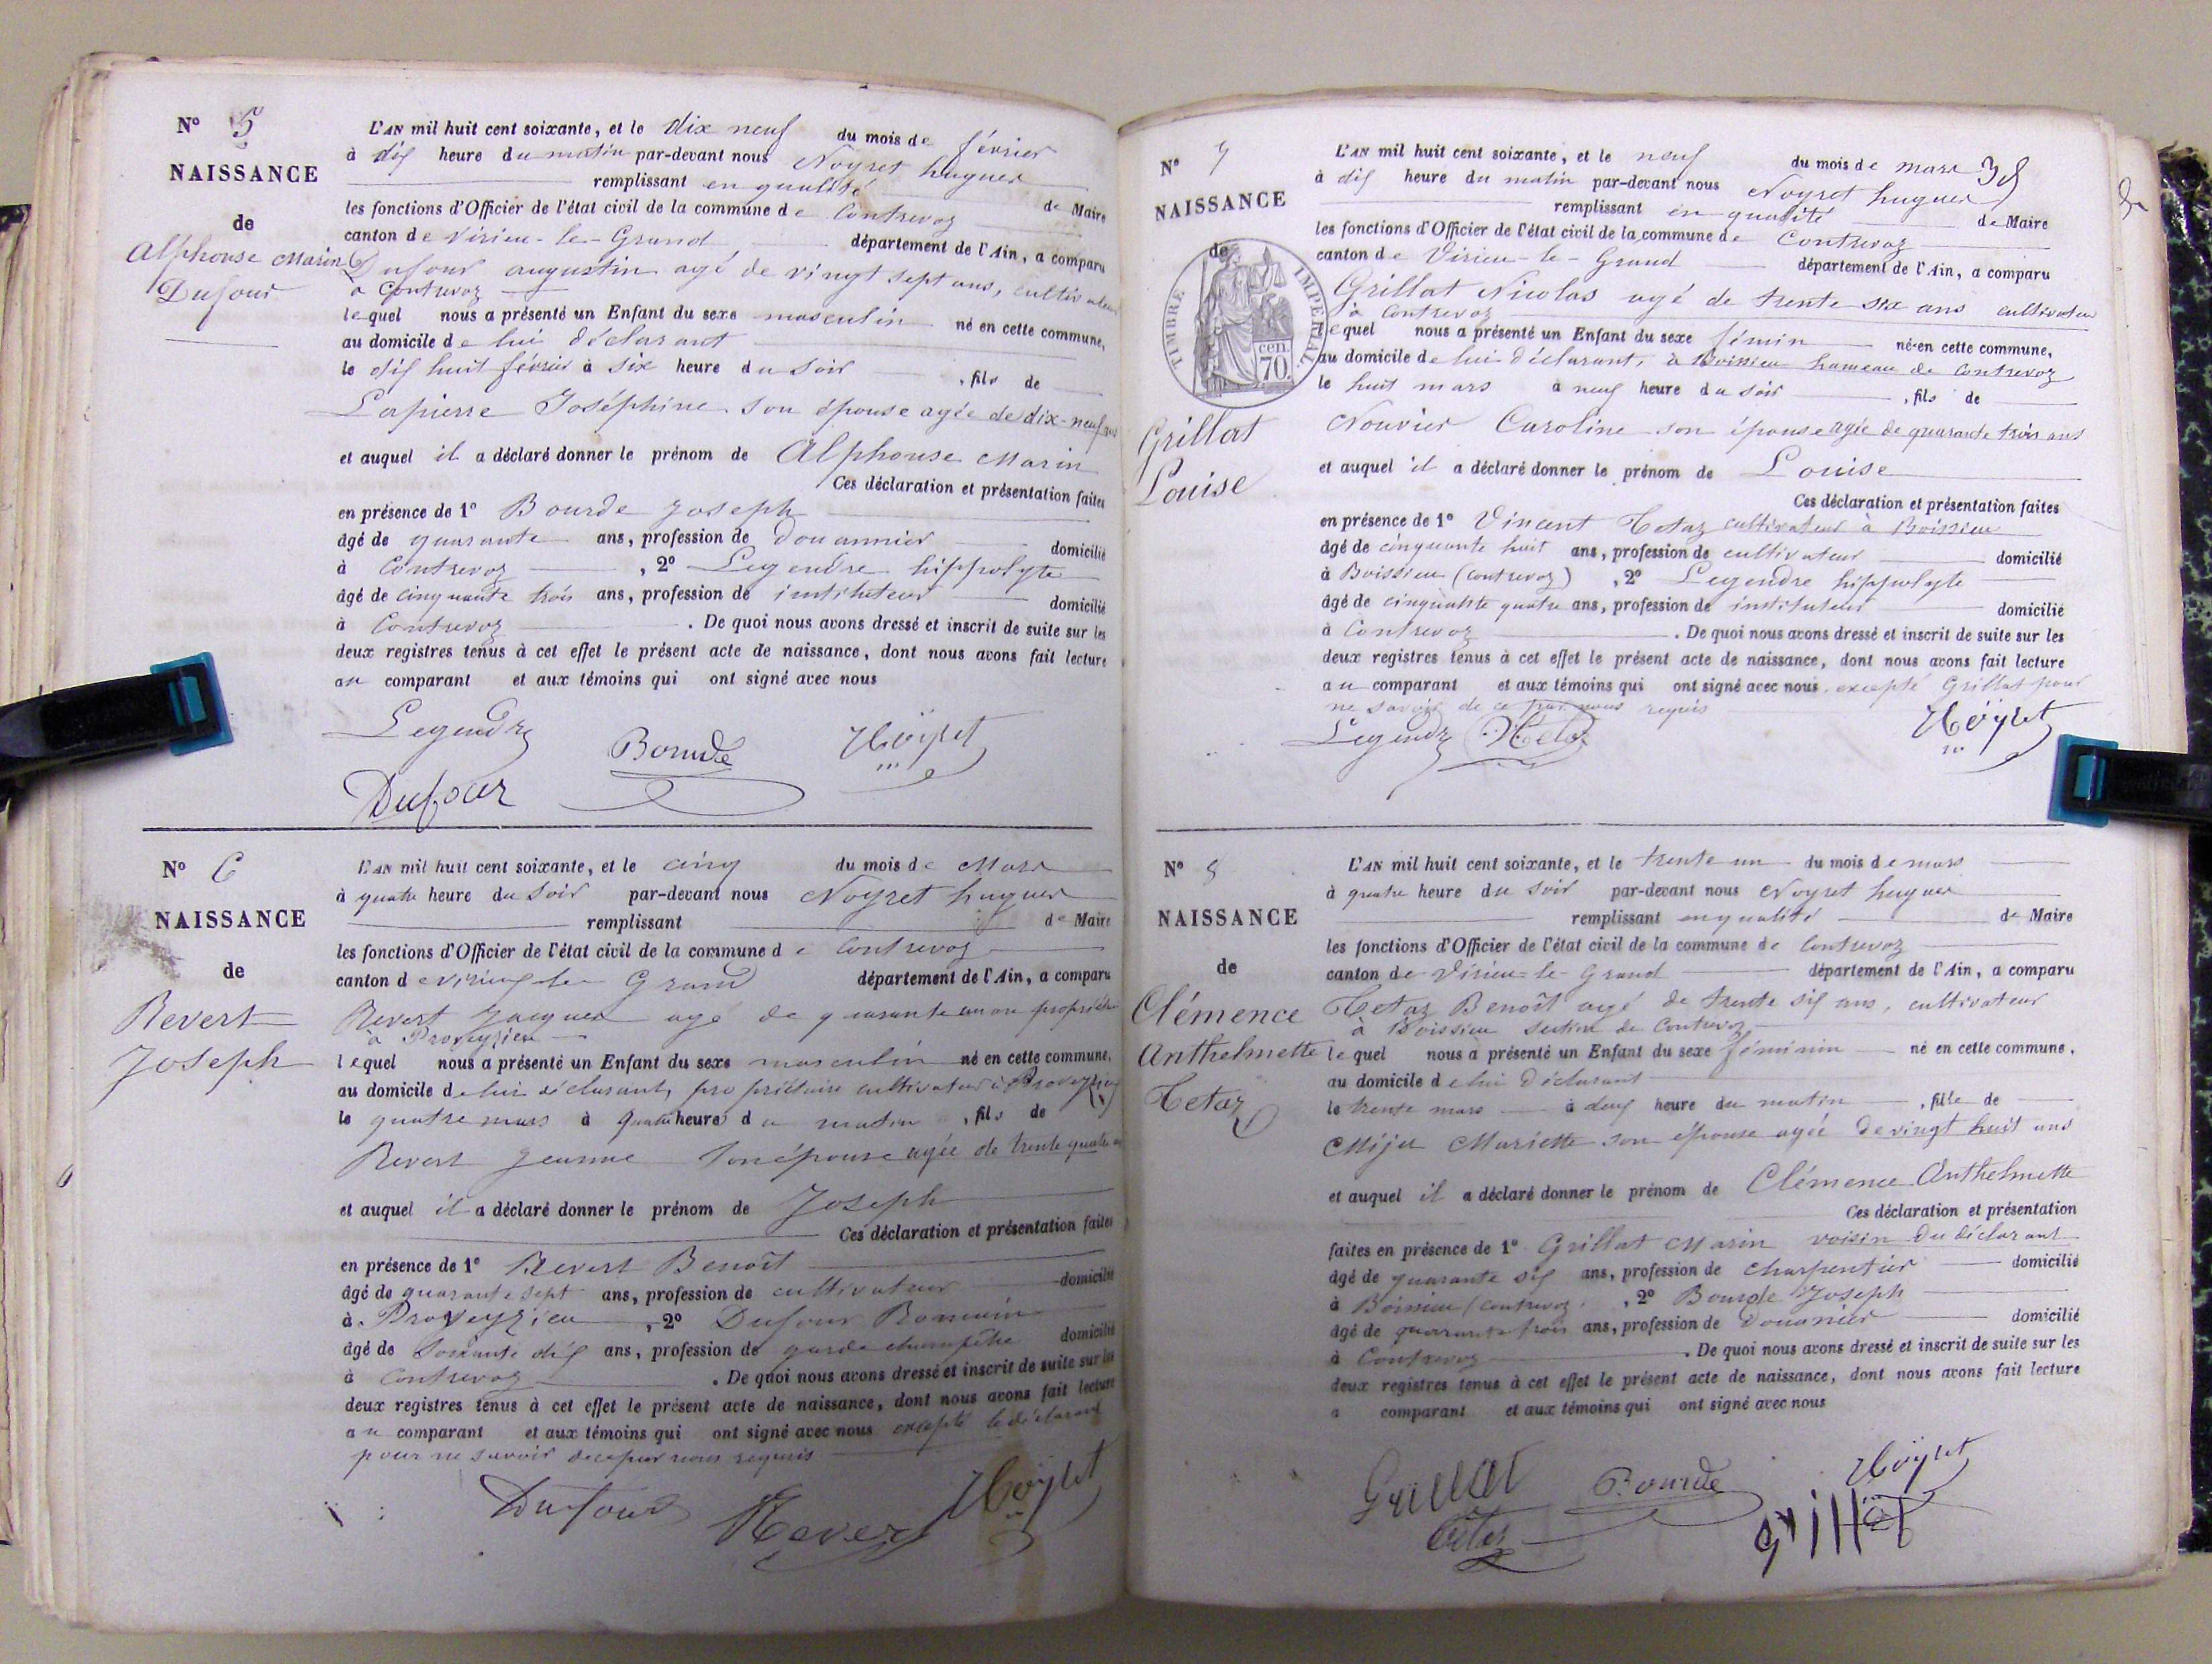 N° 5
NAISSANCE
de
Alphonse Marin
Dufour
L'AN mil huit cent soixante, et le dix neuf du mois de février
à dix heure du matin par-devant nous Noyret hugues
remplissant en qualité de Maire
les fonctions d'Officier de l'état civil de la commune de Contrevoz
canton de Virieu-le-Grand département de l'Ain, a comparu
Dufour augustin agé de vingt sept ans, cultivateur
à Contrevoz
lequel nous a présenté un Enfant du sexe masculin né en cette commune,
au domicile de lui déclarant
le dix huit février à six heure du soir , fils de
Lapierre Joséphine son épouse agée de dix-neuf ans
et auquel il a déclaré donner le prénom de Alphonse Marin
Ces déclaration et présentation faites
en présence de 1° Bourde Joseph
âgé de quarante ans, profession de douannier domicilié
à Contrevoz , 2° Legendre hippolyte
âgé de cinquante trois ans, profession de instituteur domicilié
à Contrevoz . De quoi nous avons dressé et inscrit de suite sur les
deux registres tenus à cet effet le présent acte de naissance, dont nous avons fait lecture
au comparant et aux témoins qui ont signé avec nous
Legendre Bourde Noÿret
Dufour
N° 6
NAISSANCE
de
Revert
Joseph
L'AN mil huit cent soixante, et le cinq du mois de Mars
à quatre heure du soir par-devant nous Noyret hugues
remplissant de Maire
les fonctions d'Officier de l'état civil de la commune de Contrevoz
canton de virieu le Grand département de l'Ain, a comparu
Revert Jacques agé de quarante un ans propriétaire
à Proveyzieu
lequel nous a présenté un Enfant du sexe masculin né en cette commune,
au domicile de lui déclarant, propriétaire cultivateur à Proveyzieu
le quatre mars à quatre heure du matin , fils de
Revert Jeanne son épouse agée de trente quatre ans
et auquel il a déclaré donner le prénom de Joseph
Ces déclaration et présentation faites
en présence de 1° Revert Benoît
âgé de quarante sept ans, profession de cultivateur domicilié
à Proveyzieu , 2° Dufour Romain
âgé de soixante dix ans, profession de garde champêtre domicilié
à Contrevoz . De quoi nous avons dressé et inscrit de suite sur les
deux registres tenus à cet effet le présent acte de naissance, dont nous avons fait lecture
au comparant et aux témoins qui ont signé avec nous excepté le déclarant
pour ne savoir de ce par nous requis
Dufour Rever Noÿret
N° 7
NAISSANCE
de
TIMBRE IMPERIAL
70 cen.
Grillat
Louise
38
L'AN mil huit cent soixante, et le neuf du mois de mars
à dix heure du matin par-devant nous Noyret hugues
remplissant en qualité de Maire
les fonctions d'Officier de l'état civil de la commune de Contrevoz
canton de Virieu-le-Grand département de l'Ain, a comparu
Grillat Nicolas agé de trente six ans cultivateur
à Contrevoz
lequel nous a présenté un Enfant du sexe fémin né en cette commune,
au domicile de lui déclarant, à Boissieu hameau de Contrevoz
le huit mars à neuf heure du soir , fils de
Nouvier Caroline son épouse agée de quarante trois ans
et auquel il a déclaré donner le prénom de Louise
Ces déclaration et présentation faites
en présence de 1° Vincent Tetaz cultivateur à Boissieu
âgé de cinquante huit ans, profession de cultivateur domicilié
à Boissieu (contrevoz) , 2° Legendre hippolyte
âgé de cinquante quatre ans, profession de instituteur domicilié
à Contrevoz . De quoi nous avons dressé et inscrit de suite sur les
deux registres tenus à cet effet le présent acte de naissance, dont nous avons fait lecture
au comparant et aux témoins qui ont signé avec nous. excepté Grillat pour
ne savoir de ce par nous requis
Legendre Tetaz Noÿret
N° 8
NAISSANCE
de
Clémence
Anthelmette
Tetaz
L'AN mil huit cent soixante, et le trente un du mois de mars
à quatre heure du soir par-devant nous Noyret hugues
remplissant en qualité de Maire
les fonctions d'Officier de l'état civil de la commune de Contrevoz
canton de Virieu-le-Grand département de l'Ain, a comparu
Tetaz Benoît agé de trente six ans, cultivateur
à Boissieu section de Contrevoz
lequel nous a présenté un Enfant du sexe féminin né en cette commune,
au domicile de lui déclarant
le trente mars à deux heure du matin , fille de
Mijet Mariette son épouse agée de vingt huit ans
et auquel il a déclaré donner le prénom de Clémence Anthelmette
Ces déclaration et présentation
faites en présence de 1° Grillat Marin voisin du déclarant
âgé de quarante six ans, profession de charpentier domicilié
à Boissieu (contrevoz. , 2° Bourde Joseph
âgé de quarante trois ans, profession de Douanier domicilié
à Contrevoz . De quoi nous avons dressé et inscrit de suite sur les
deux registres tenus à cet effet le présent acte de naissance, dont nous avons fait lecture
a comparant et aux témoins qui ont signé avec nous
Grillat Bourde Noÿret
Tetaz grillat